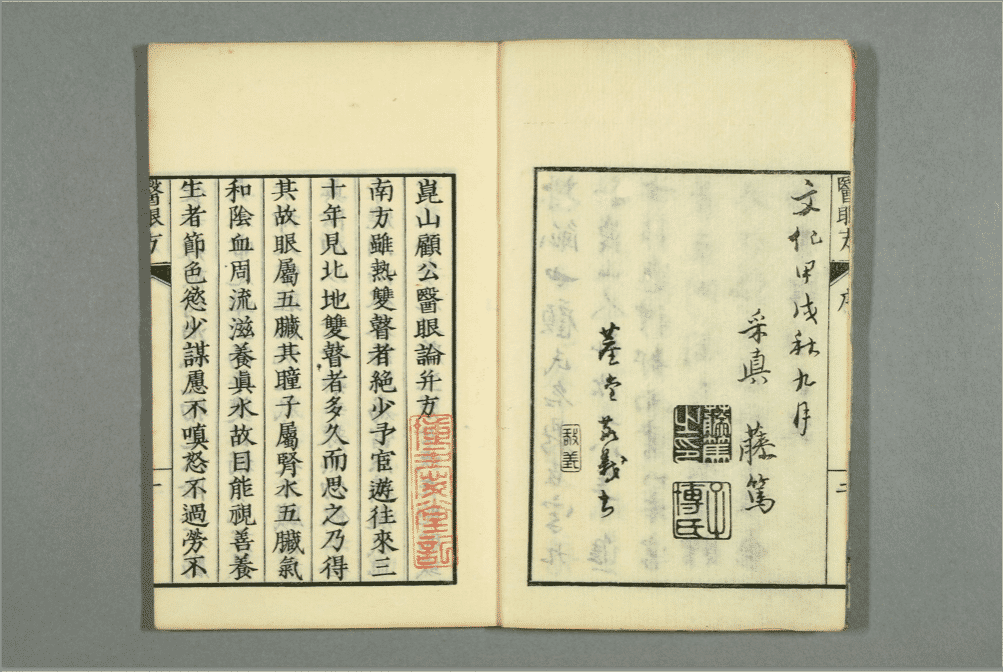 醫眼方
序
二
文化甲戌秋九月
采真 藤篤
藤篤之印
子博氏
敬義
崑山顧公醫眼論幷方
南方雖熱雙瞽者絶少予宦遊往來三
十年見北地雙瞽者多久而思之乃得
其故眼屬五臟其瞳子屬腎水五臟氣
和陰血周流滋養眞水故目能視善養
生者節色慾少謀慮不嗔怒不過勞不
醫眼方
一